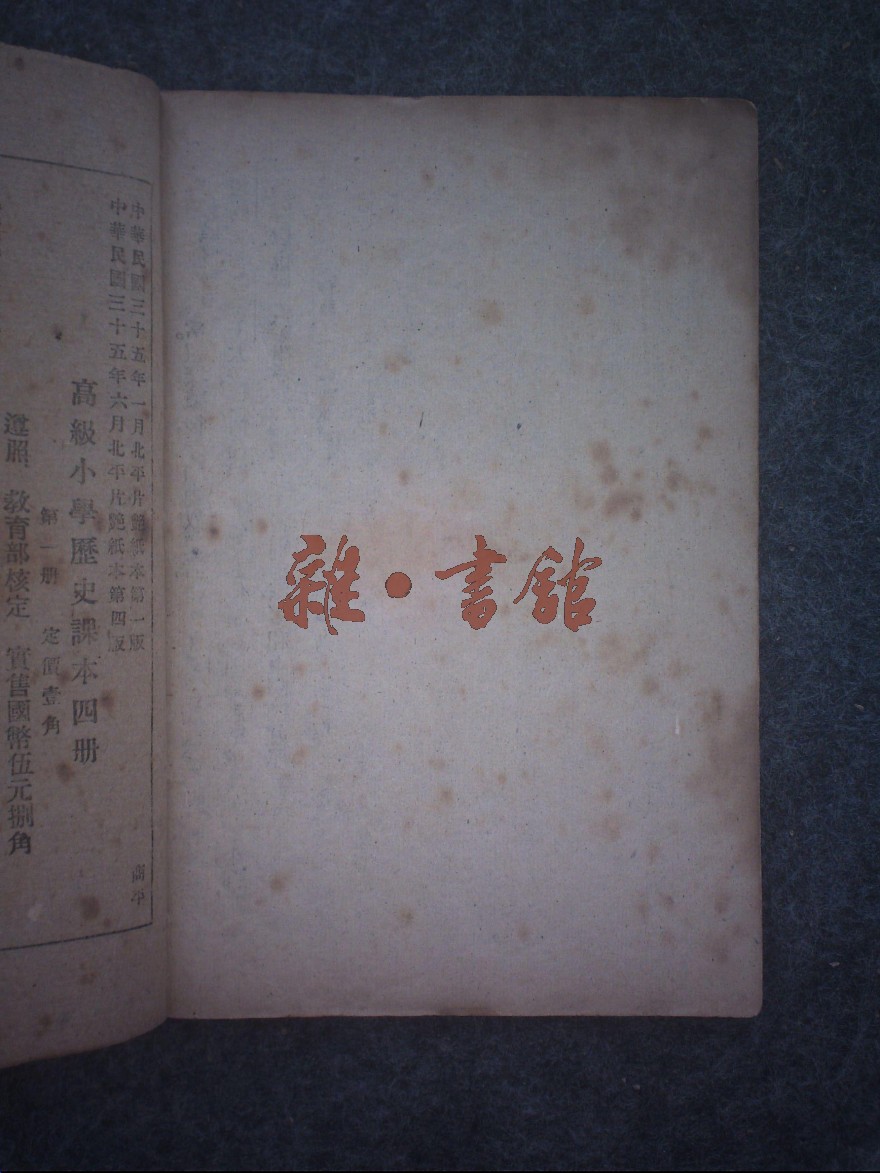 中華民國三十五年一月北平片艶紙本第一版
中華民國三十五年六月北平片艶紙本第四版
高級小學歷史課本四册
第一册 定價壹角
遵照 教育部核定 實售國幣伍元捌角
商平
雜•書館